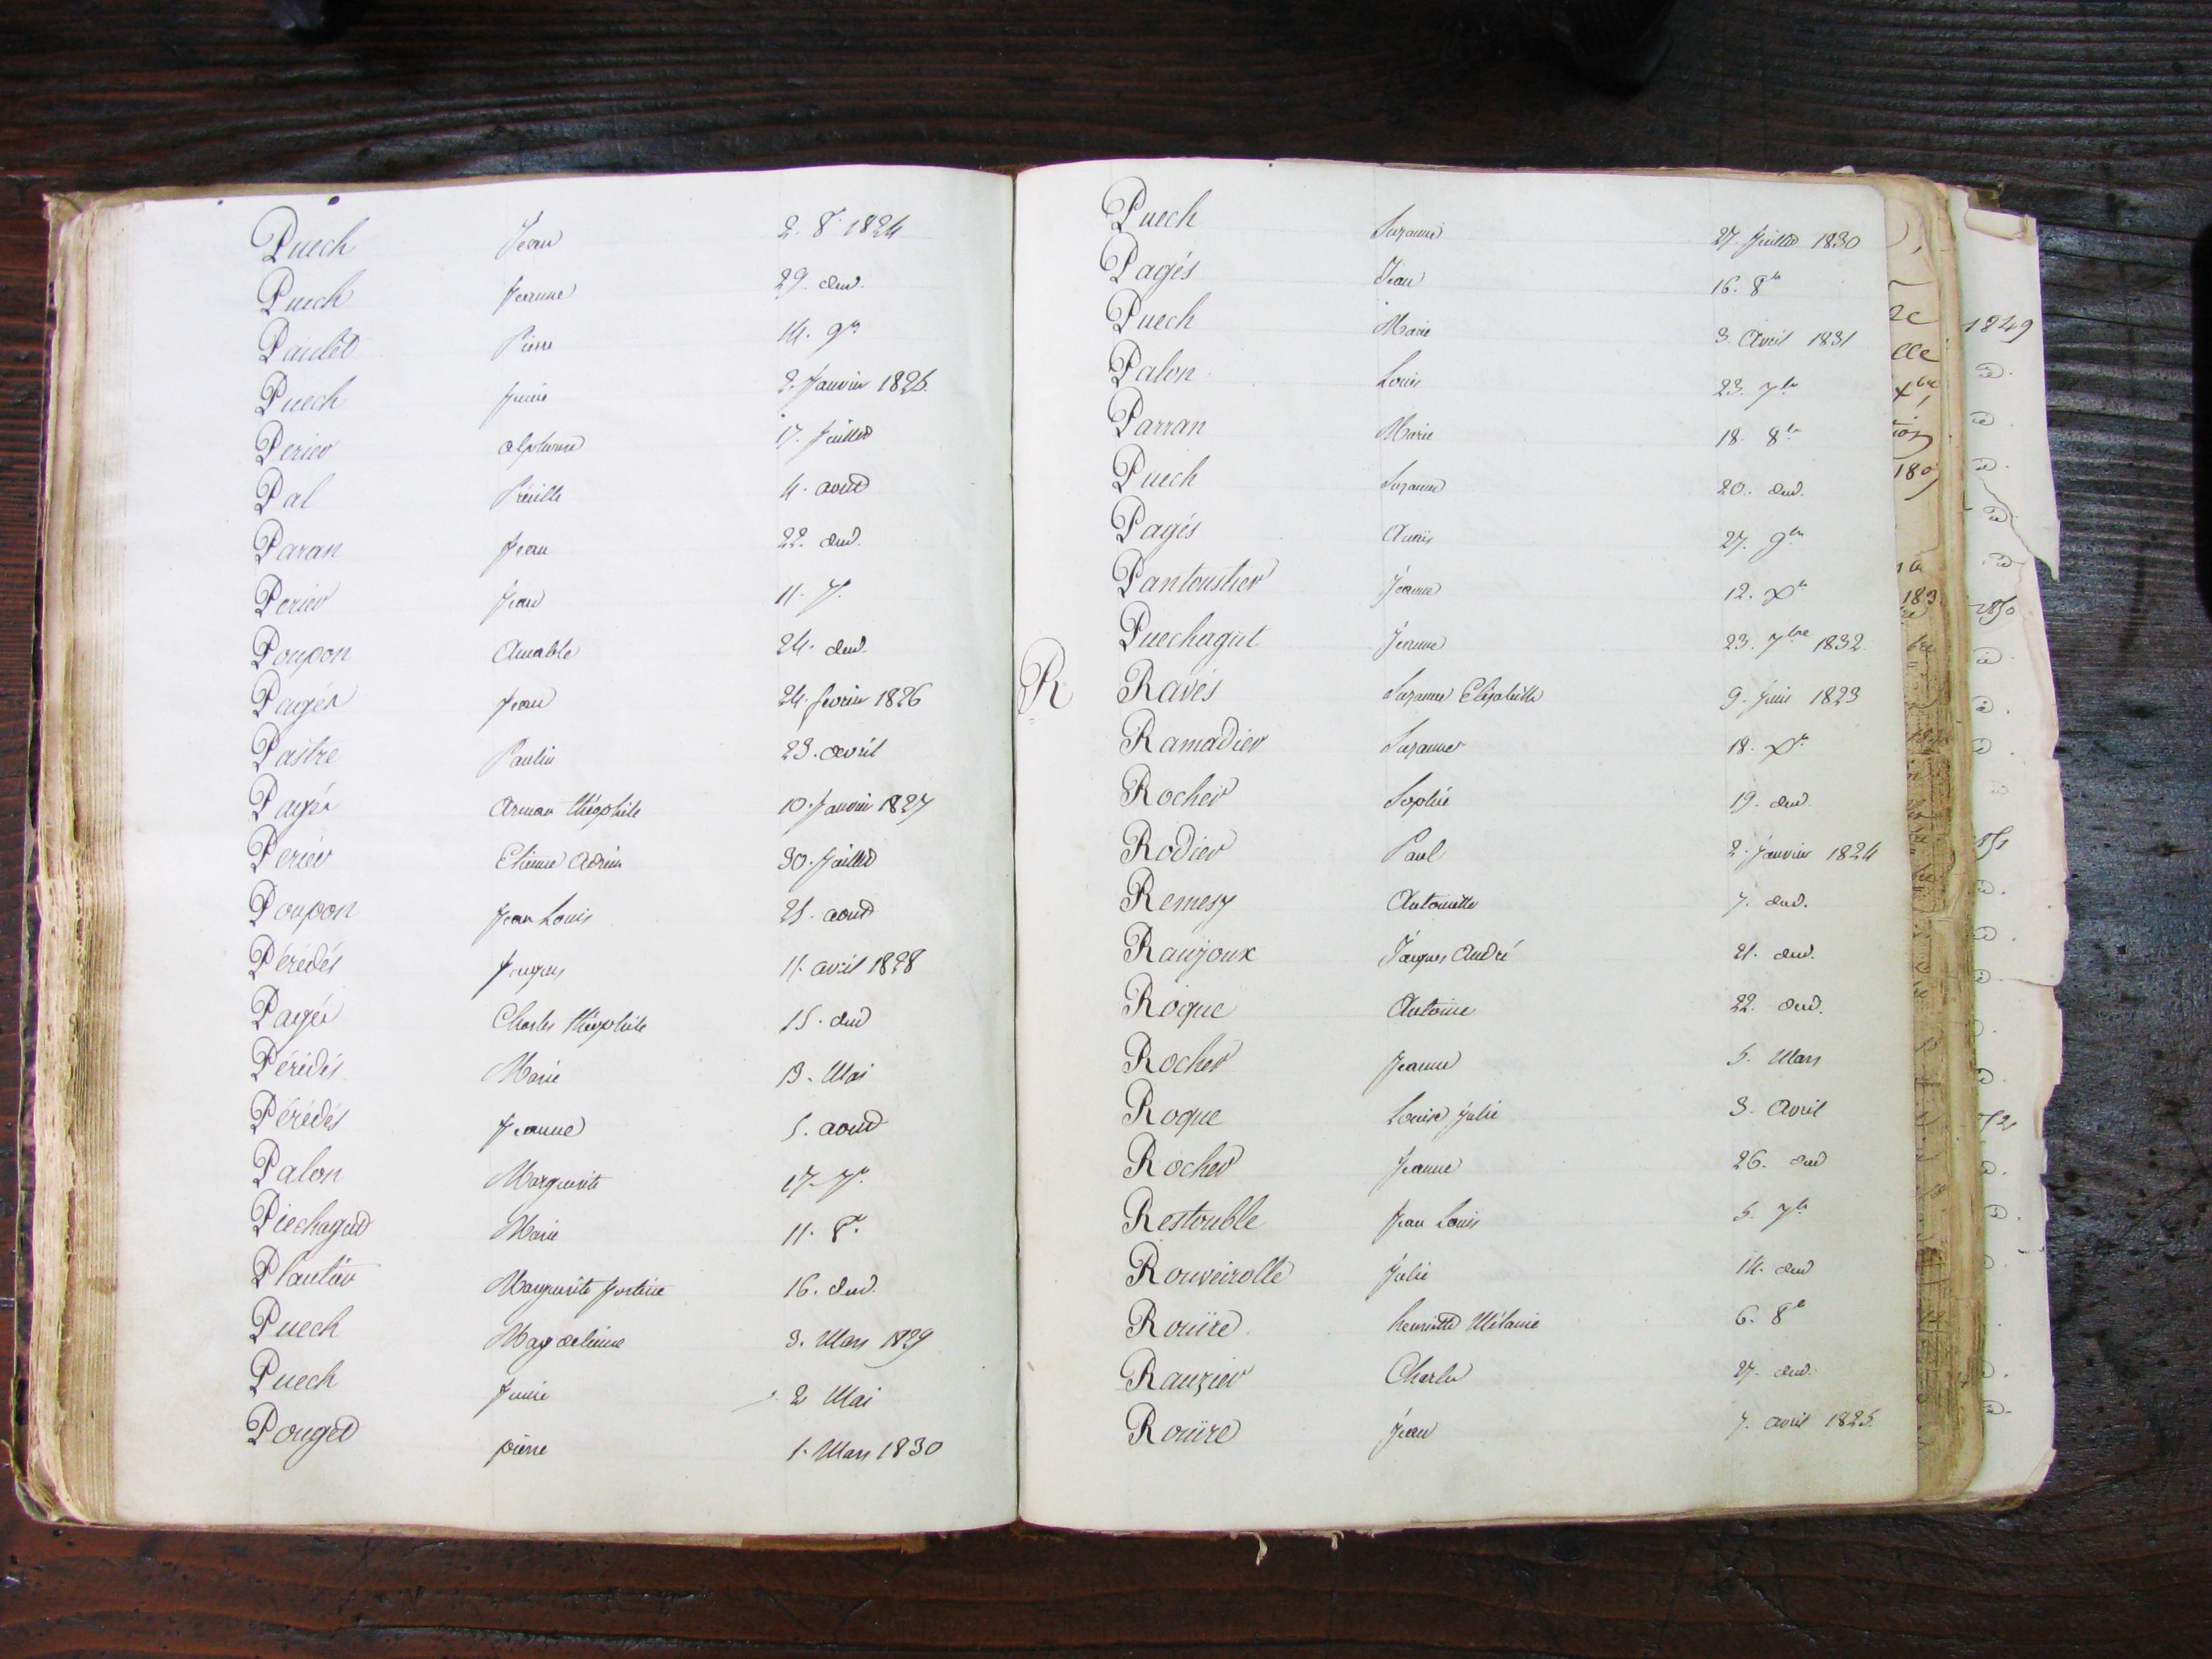 Puech Jean 2. 8. 1824
Puech Jeanne 29. dud.
Paulet Pierre 14. 9re
Puech Junie 2. Janvier 1825.
Perier alphonse 17. Juillet
Pal 4. aout
Paran Jean 22. dud.
Perier Jean 11. 7.
Poupon Amable 24. dud.
Pagés Jean 24. fevrier 1826
Pastre Paulin 23. avril
Pagés Arman théophile 10. Janvier 1827
Perier Etienne Adrien 30. Juillet
Poupon Jean Louis 21. aout
Pérédés Jaques 11. avril 1828
Pagés Charles théophile 15. dud
Pérédés Marie 13. Mai
Pérédés Jeanne 5. aout
Palon Marguerite 17. 7re
Puechagut Marie 11. 8re
Plantier Marguerite Justine 16. dud.
Puech Magdeleine 3. Mars 1829
Puech Junie 2 Mai
Pouget pierre 1. Mars 1830
Puech Suzanne 27. Juillet 1830
Pagés Jean 16. 8re
Puech Marie 3. Avril 1831
Palon Louis 23. 7re
Parran Marie 18. 8re
Puech Suzanne 20. dud.
Pagés Anaïs 27. 9re
Pantoustier Jeanne 12. Xre
Puechagut Jeanne 23. 7bre 1832.
R Ravés Suzanne Elizabeth 9. Juin 1823
Ramadier Suzanne 18. Xre
Rocher Sophie 19. dud.
Rodier Paul 2. Janvier 1824
Remesy Antoinette 7. dud.
Raujoux Jaques André 21. dud.
Roque Antoine 22. dud.
Rocher Jeanne 5. Mars
Roque Louise Julie 3. Avril
Rocher Jeanne 26. dud
Restouble Jean Louis 5. 7re
Rouveirolle Julie 14. dud
Rouïre henriette Mélanie 6. 8re
Rauzier Charles 27. dud.
Rouïre Jean 7. avril 1825.
1849